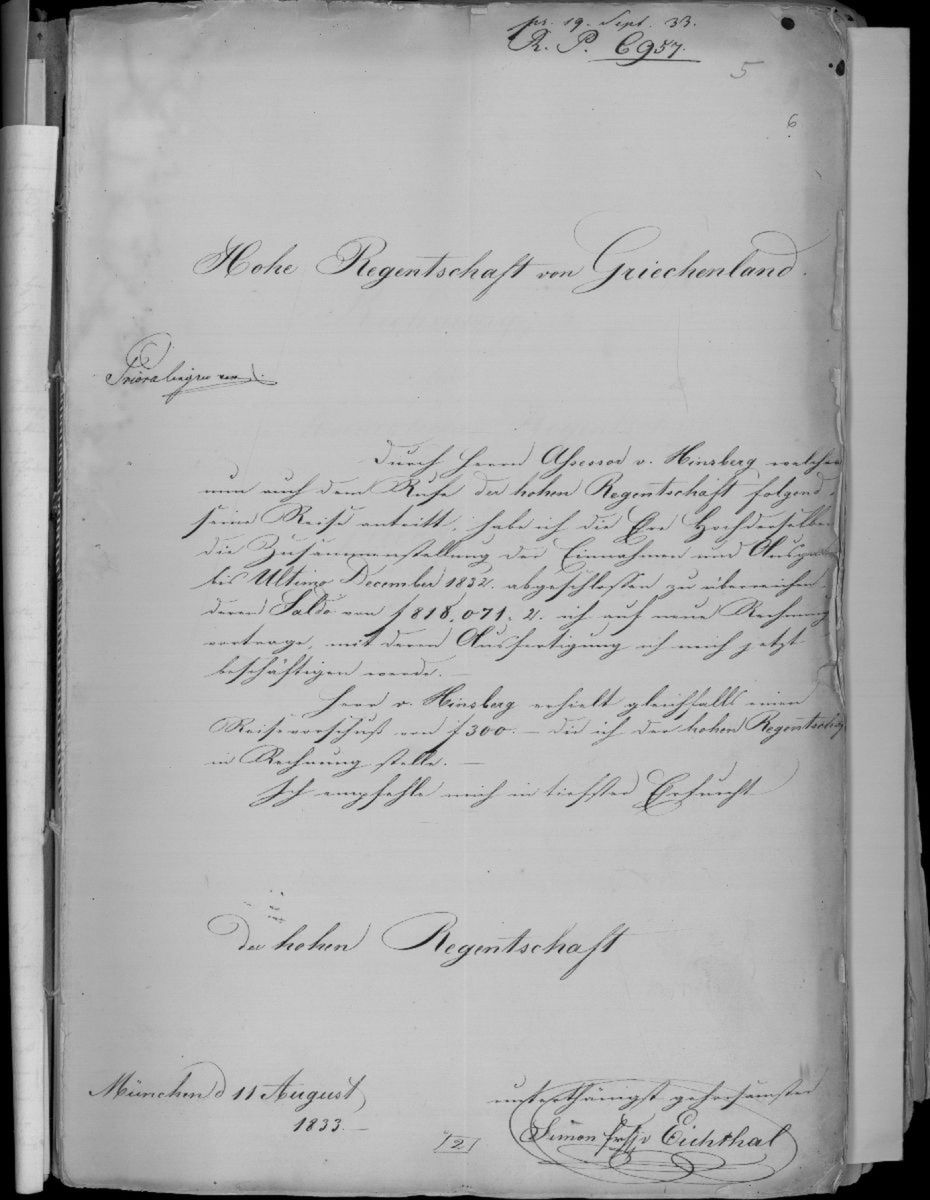 pr. 19. Sept. 33.
R. P. 6957.
5
6
Hohe Regentschaft von Griechenland.
Durch Herrn Assessor v. Hinsberg, welcher
nun auch dem Rufe der hohen Regentschaft folgend,
seine Reise antritt, habe ich die Ere Hochderselben
die Zusammenstellung der Einnahmen und Ausgaben
bis Ultimo December 1832. abgeschlossen zu überreichen
deren Saldo von f 818,071. 2. ich auf neue Rechnung
vortrage, mit deren Ausfertigung ich mich jetzt
beschäftigen werde. —
Herr v. Hinsberg erhielt gleichfalls einen
Reisevorschuß von f 300. — die ich der hohen Regentschaft
in Rechnung stelle. —
Ich empfehle mich in tiefster Erfurcht
der hohen Regentschaft
München d 11 August
1833. —
unterthänigst gehorsamster
Simon frhr v Eichthal
2